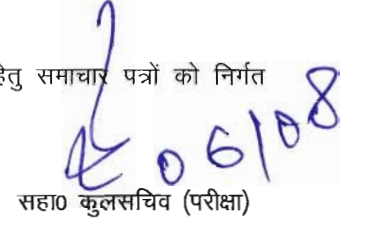 हेतु समाचार पत्रों को निर्गत
06/08
सहा0 कुलसचिव (परीक्षा)